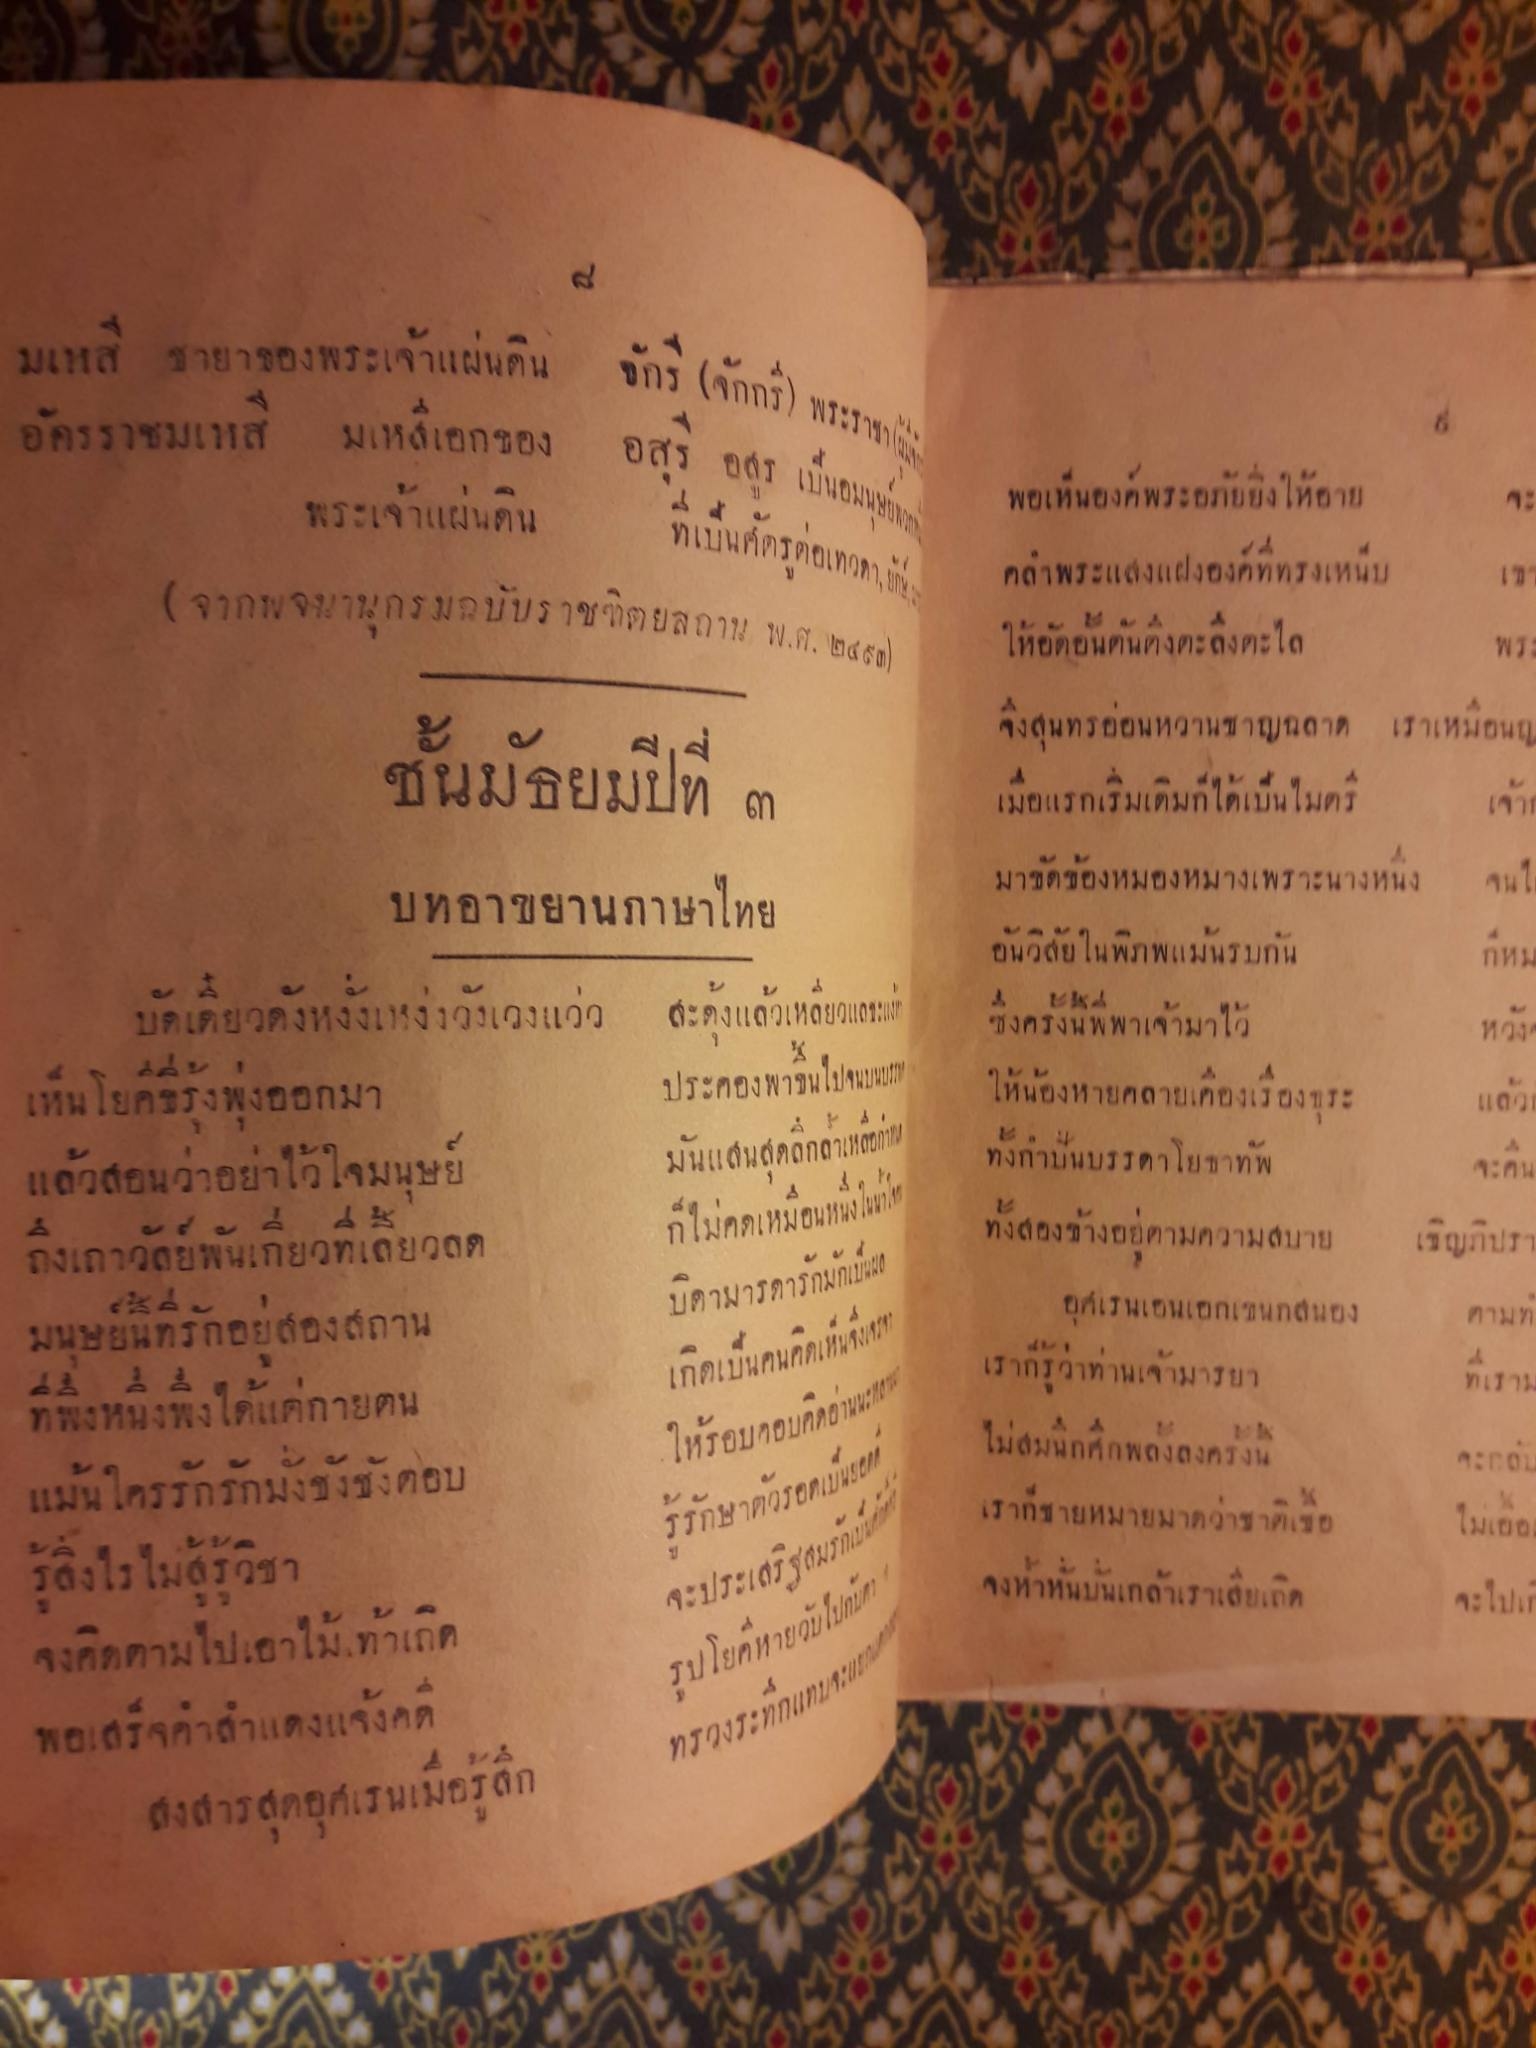 ๘
มเหสี ชายาของพระเจ้าแผ่นดิน
อัครราชมเหสี มเหสีเอกของ
พระเจ้าแผ่นดิน
จักรี (จักกรี) พระราชา
อสุรี อสูร เป็นอมนุษย์พวก
ที่เป็นศัตรูต่อเทวดา, ยักษ์,
(จากพจนานุกรมฉบับราชฑิตยสถาน พ.ศ. ๒๔๙๓)
ชั้นมัธยมปีที่ ๓
บทอาขยานภาษาไทย
บัดเดี๋ยวดังหง่งเหง่งวังเวงแว่ว สะดุ้งแล้วเหลียวแลชะแง้
เห็นโยคีขี่รุ้งพุ่งออกมา ประคองพาขึ้นไปจนบนบรรพ
แล้วสอนว่าอย่าไว้ใจมนุษย์ มันแสนสุดลึกล้ำเหลือกำหนด
ถึงเถาวัลย์พันเกี่ยวที่เลี้ยวลด ก็ไม่คดเหมือนหนึ่งในน้ำใจคน
มนุษย์นี้ที่รักอยู่สองสถาน บิดามารดารักมักเป็นผล
ที่พึ่งหนึ่งพึ่งได้แต่กายตน เกิดเป็นคนคิดเห็นจึงเจรจา
แม้นใครรักรักมั่งชังชังตอบ ให้รอบคอบคิดอ่านนะหลานหนา
รู้สิ่งไรไม่สู้รู้วิชา รู้รักษาตัวรอดเป็นยอดดี
จงคิดตามไปเอาไม้ท้าเถิด จะประเสริฐสมรักเป็นศักดิ์ศรี
พอเสร็จคำสำแดงแจ้งคดี รูปโยคีหายวับไปกับตา
สงสารสุดอุศเรนเมื่อรู้สึก ทรวงระทึกแทบจะแยกแตก
๙
พอเห็นองค์พระอภัยยิ่งให้อาย จะ
คลำพระแสงแฝงองค์ที่ทรงเหน็บ เขา
ให้อัดอั้นตันตึงตะลึงตะไล พระ
จึงสุนทรอ่อนหวานชาญฉลาด เราเหมือนญ
เมื่อแรกเริ่มเดิมก็ได้เป็นไมตรี เจ้า
มาขัดข้องหมองหมางเพราะนางหนึ่ง จน
อันวิสัยในพิภพแม้นรบกัน ก็หม
ซึ่งครั้งนี้พี่พาเจ้ามาไว้ หวัง
ให้น้องหายคลายเคืองเรื่องธุระ แล้ว
ทั้งกำปั่นบรรดาโยธาทัพ จะคืน
ทั้งสองข้างอยู่ตามความสบาย เชิญภิปรา
อุศเรนเอนเอกเขนกสนอง ตาม
เราก็รู้ว่าท่านเจ้ามารยา ที่เราม
ไม่สมนึกศึกพลั้งลงครั้งนี้ จะกลับ
เราก็ชายหมายมาดว่าชาติเชื้อ ไม่เอื้อ
จงห้ำหั่นบั่นเกล้าเราเสียเถิด จะไปเกิ